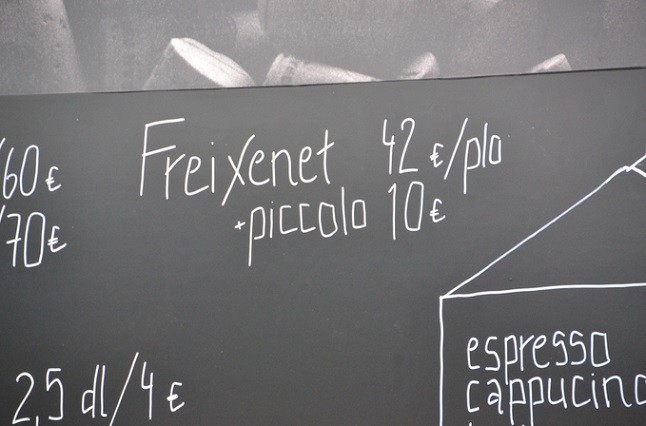 /60€
/70€
Freixenet 42€/plo
+piccolo 10€
2,5 dl/4 €
espresso
cappucino